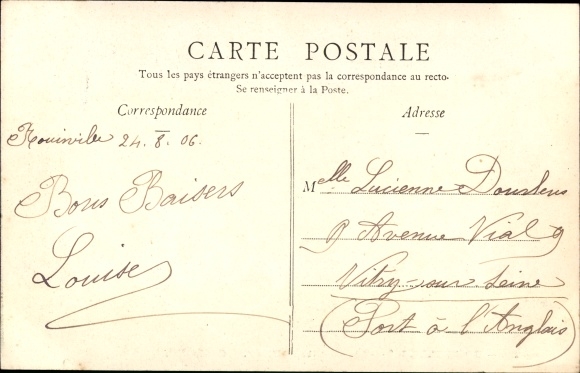 CARTE POSTALE
Tous les pays étrangers n'acceptent pas la correspondance au recto.
Se renseigner à la Poste.
Correspondance
Adresse
24. 8. 06.
Bons Baisers
Louise
Melle Lucienne
9 Avenue Vial 9
Vitry-sur-Seine
(Port à l'Anglais)